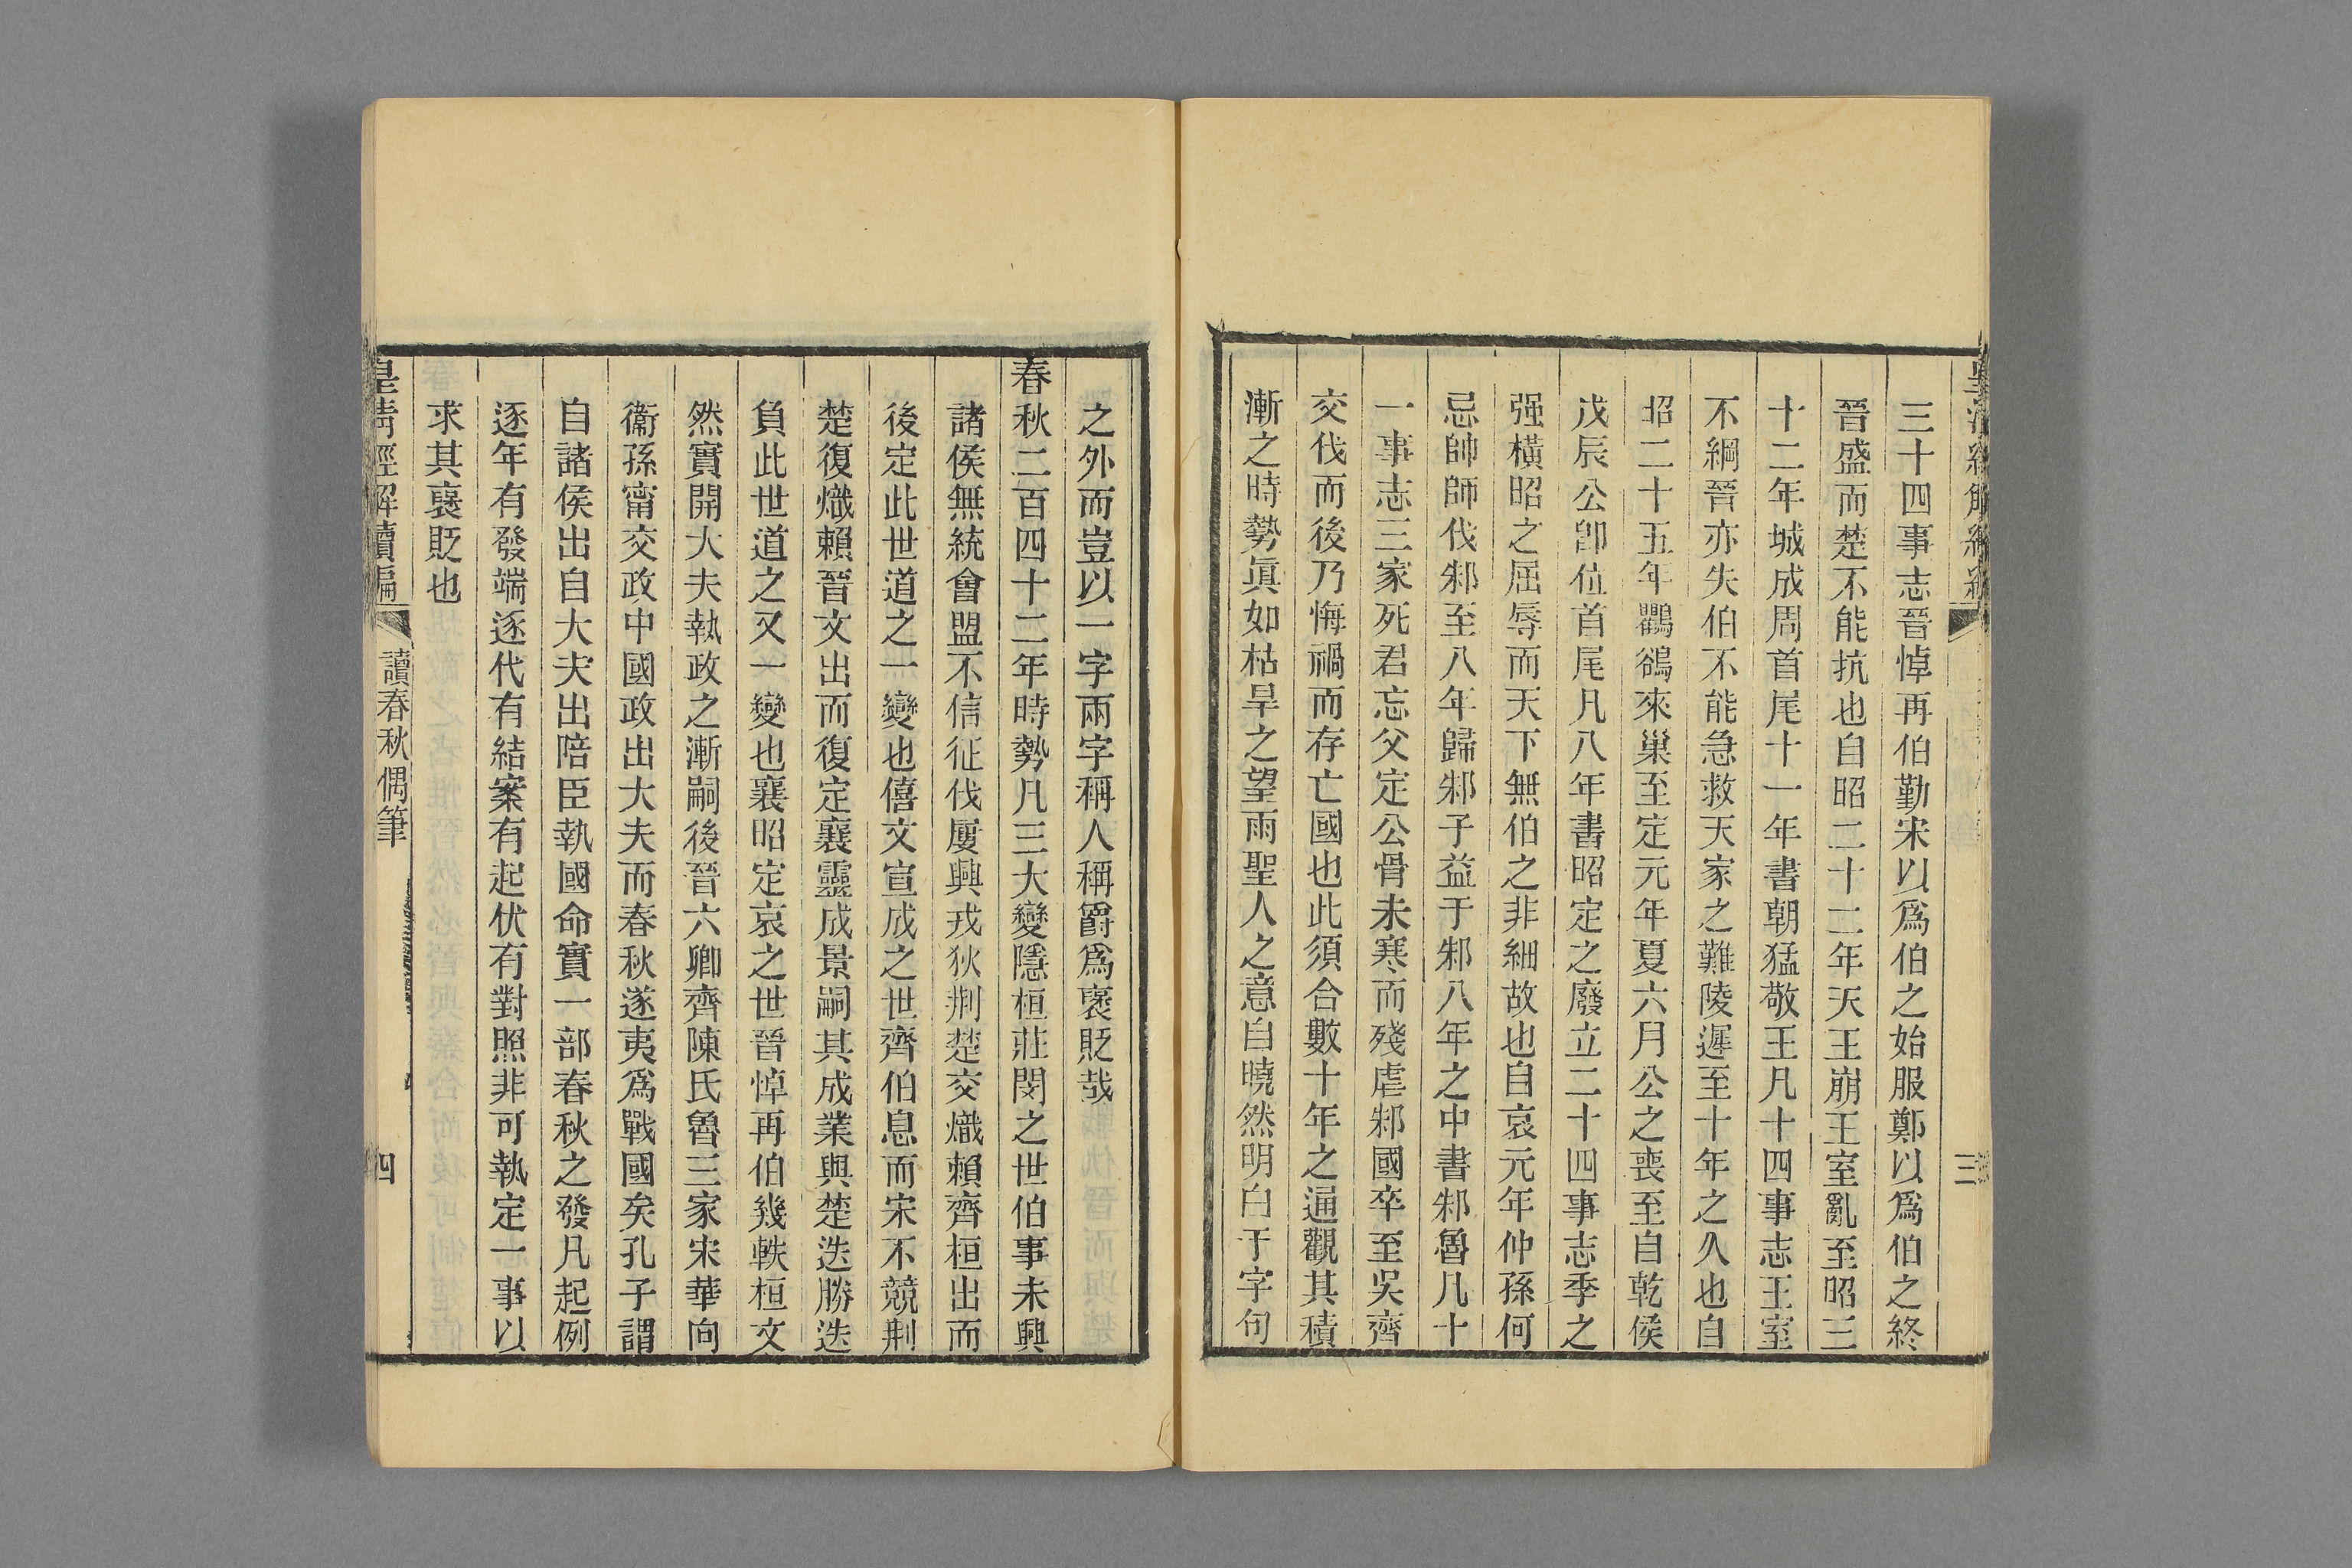 三十四事志晉悼再伯勤宋以爲伯之始服鄭以爲伯之終
晉盛而楚不能抗也自昭二十二年天王崩王室亂至昭三
十二年城成周首尾十一年書朝猛敬王凡十四事志王室
不綱晉亦失伯不能急救天家之難陵遲至十年之久也自
昭二十五年鸜鵒來巢至定元年夏六月公之喪至自乾侯
戊辰公卽位首尾凡八年書昭定之廢立二十四事志季之
强橫昭之屈辱而天下無伯之非細故也自哀元年仲孫何
忌帥師伐邾至八年歸邾子益于邾八年之中書邾魯凡十
一事志三家死君忘父定公骨未寒而殘虐邾國卒至吳齊
交伐而後乃悔禍而存亡國也此須合數十年之通觀其積
漸之時勢眞如枯旱之望雨聖人之意自曉然明白于字句
三
之外而豈以一字兩字稱人稱爵爲褒貶哉
春秋二百四十二年時勢凡三大變隱桓莊閔之世伯事未興
諸侯無統會盟不信征伐屢興戎狄荆楚交熾賴齊桓出而
後定此世道之一變也僖文宣成之世齊伯息而宋不競荆
楚復熾賴晉文出而復定襄靈成景嗣其成業與楚迭勝迭
負此世道之又一變也襄昭定哀之世晉悼再伯幾軼桓文
然實開大夫執政之漸嗣後晉六卿齊陳氏魯三家宋華向
衞孫甯交政中國政出大夫而春秋遂夷爲戰國矣孔子謂
自諸侯出自大夫出陪臣執國命實一部春秋之發凡起例
逐年有發端逐代有結案有起伏有對照非可執定一事以
求其褒貶也
皇清經解續編
讀春秋偶筆
四